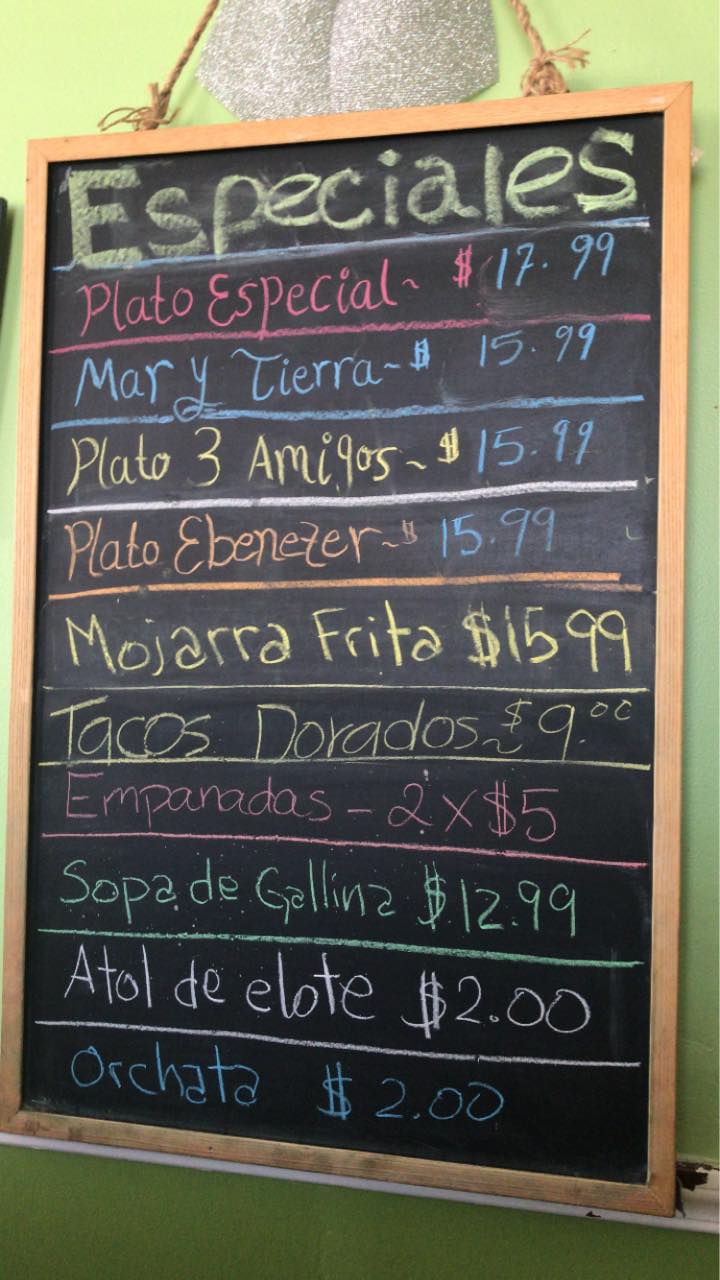 Especiales
Plato Especial ~ $ 17.99
Mar y Tierra ~ $ 15.99
Plato 3 Amigos ~ $ 15.99
Plato Ebenezer ~ $ 15.99
Mojarra Frita $15 99
Tacos Dorados ~ $ 9.00
Empanadas - 2 x $5
Sopa de Gallina $12.99
Atol de elote $2.00
Orchata $ 2.00